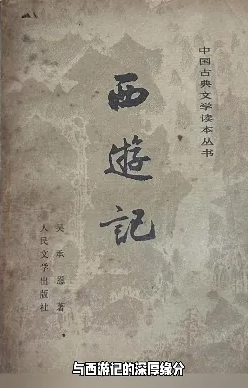 中国古典文学读本丛书
西遊記
吴承恩著
人民文学出版社
与西游记的深厚缘分